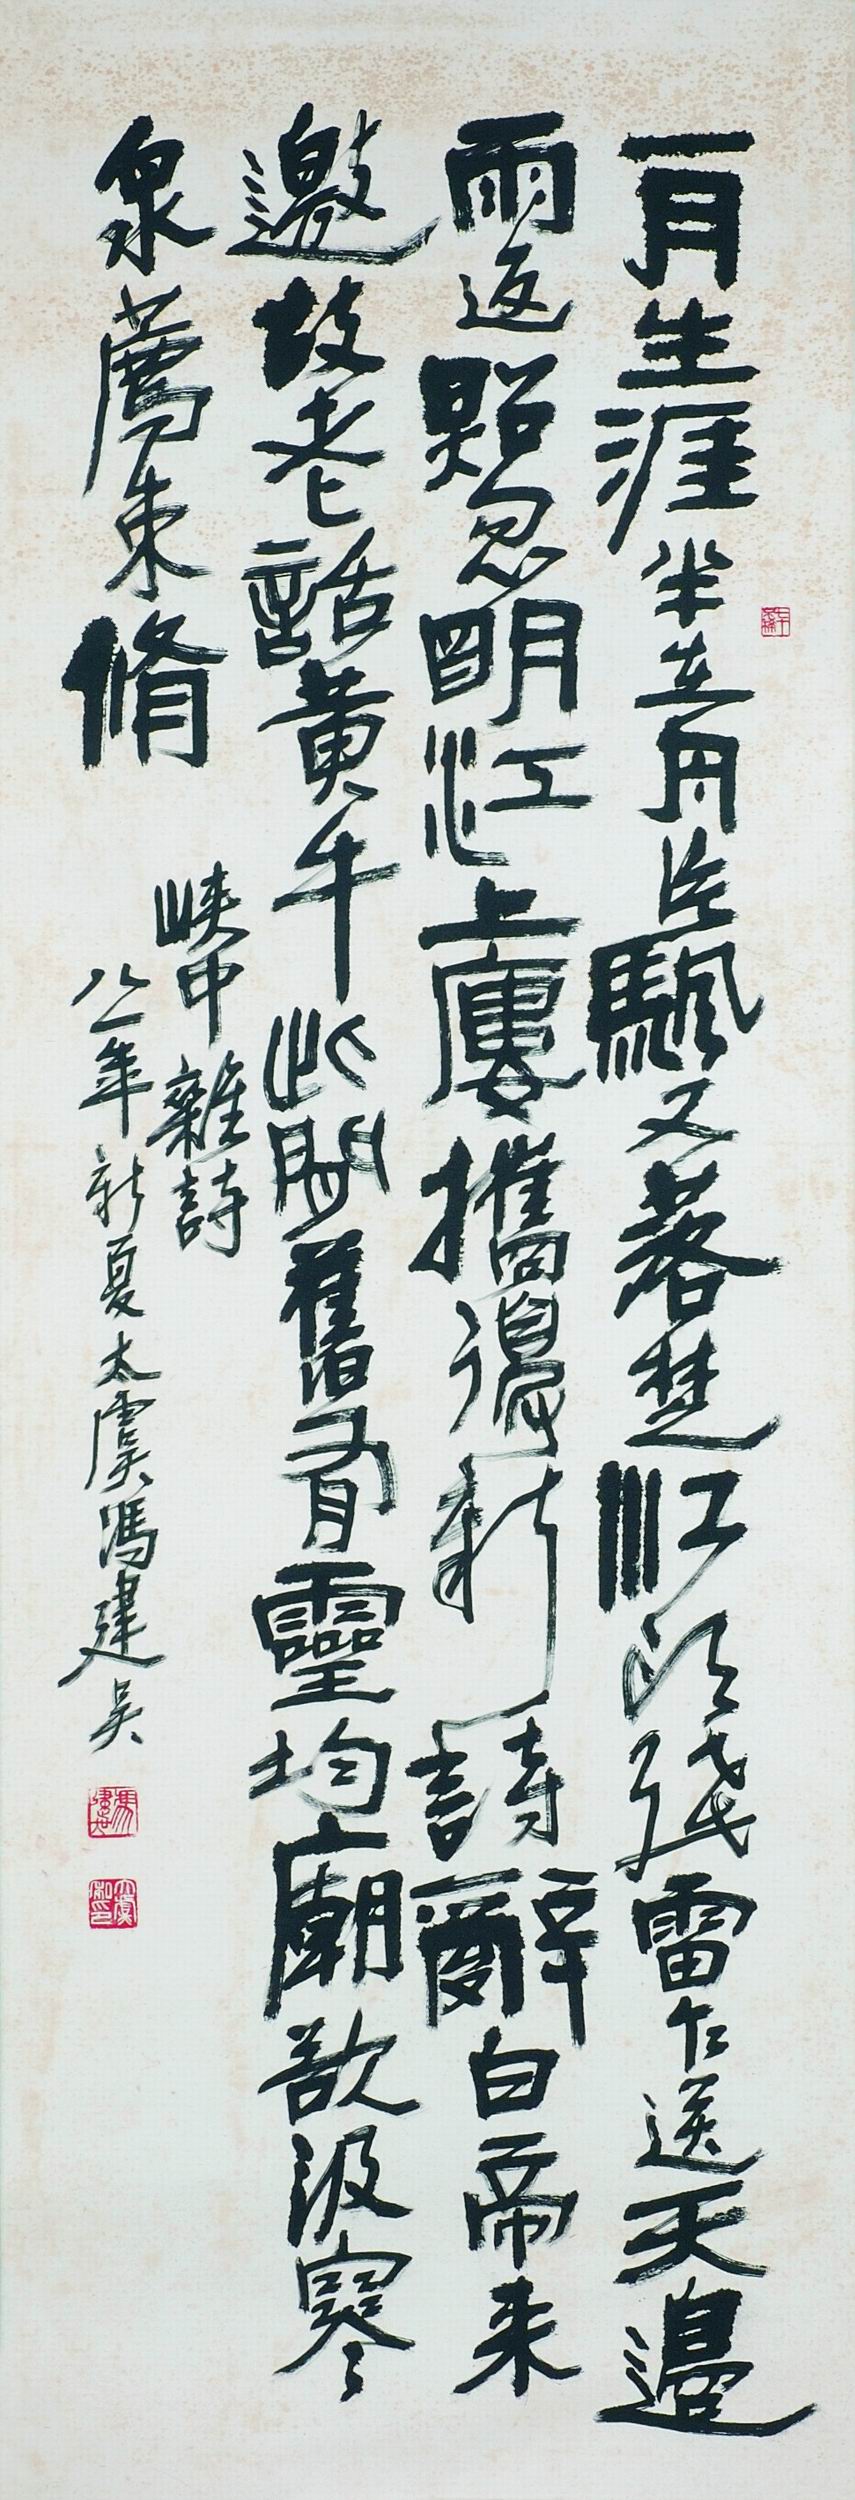 一月生涯半在舟片颿又落楚江頭殘雷乍送天邊
雨返照忽明江上廔攜得新詩辭白帝来
邀故老話黄牛此間舊有靈均廟欲汲寒
泉薦束脩
峽中雜詩
八一年新夏太虞馮建吳